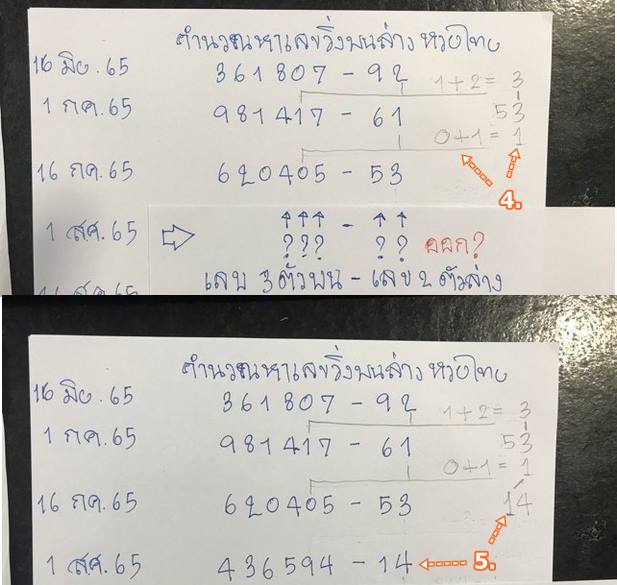 คำนวณหาเลขวิ่งบนล่าง หวยไทย
16 มิย. 65 361807 - 92 1+2= 3
1 กค. 65 981417 - 61 53
0+1= 1
16 กค. 65 620405 - 53
4.
1 สค. 65 ??? - ?? ออก?
เลข 3 ตัวบน - เลข 2 ตัวล่าง
คำนวณหาเลขวิ่งบนล่าง หวยไทย
16 มิย. 65 361807 - 92 1+2= 3
1 กค. 65 981417 - 61 53
0+1= 1
16 กค. 65 620405 - 53 14
1 สค. 65 436594 - 14 5.